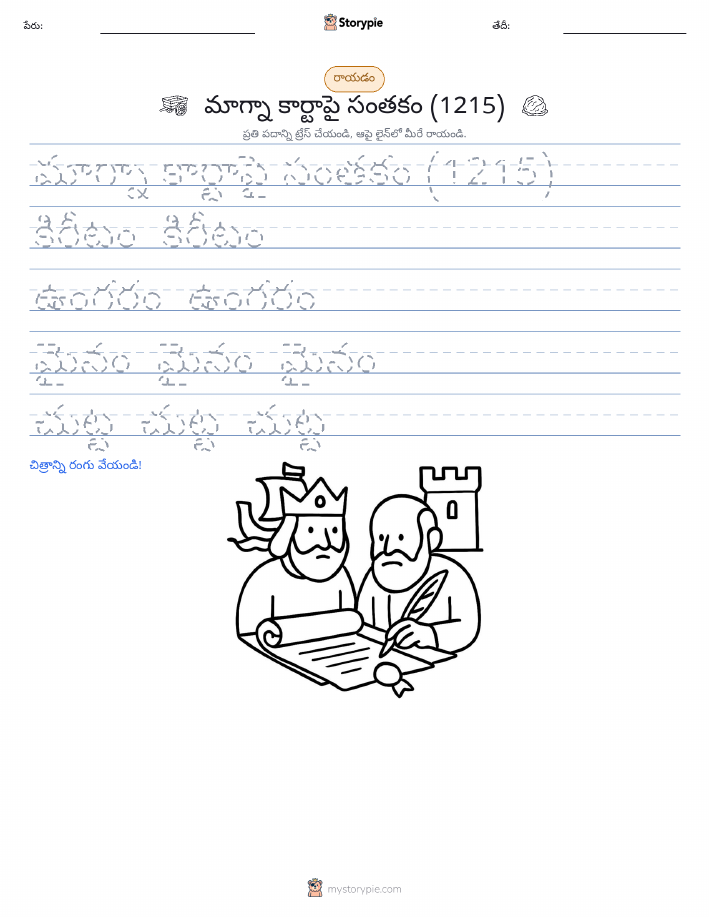 పేరు:
Storypie
తేదీ:
రాయడం
మాగ్నా కార్టాపై సంతకం (1215)
ప్రతి పదాన్ని ట్రేస్ చేయండి, ఆపై లైన్‌లో మీరే రాయండి.
మాగ్నా కార్టాపై సంతకం (1215)
కిరీటం కిరీటం
ఉంగరం ఉంగరం
మైనం మైనం మైనం
చుట్ట చుట్ట చుట్ట
చిత్రాన్ని రంగు వేయండి!
mystorypie.com